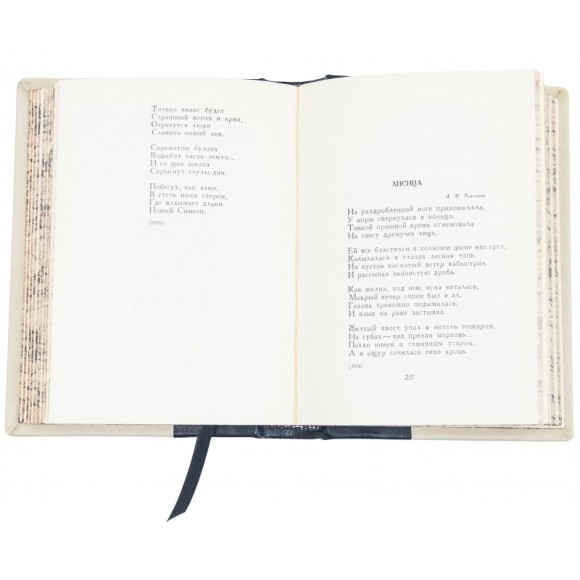 Только знаю: будет
Страшный вопль и крик,
Отрекутся люди
Славить новый лик.
Скрежетом булата
Вздыбят пасть земли...
И со щек заката
Спрыгнут скулы-дни.
Побегут, как лани,
В степь иных сторон,
Где вздымает длани
Новый Симеон.
ЛИСИЦА
А. М. Ремизову
На раздробленной ноге приковыляла,
У норы свернулася в кольцо.
Тонкой прошвой кровь отмежевала
На снегу дремучее лицо.
Ей все бластился в колючем дыме выстрел,
Колыхалася в глазах лесная топь.
Из кустов косматый ветер взбыстрил
И рассыпал звонистую дробь.
Как желна, над нею мгла металась,
Мокрый вечер липок был и ал.
Голова тревожно подымалась,
И язык на ране застывал.
Желтый хвост упал в метель пожаром,
На губах — как прелая морковь...
Пахло инеем и глиняным угаром,
А в ощур сочилась тихо кровь.
237